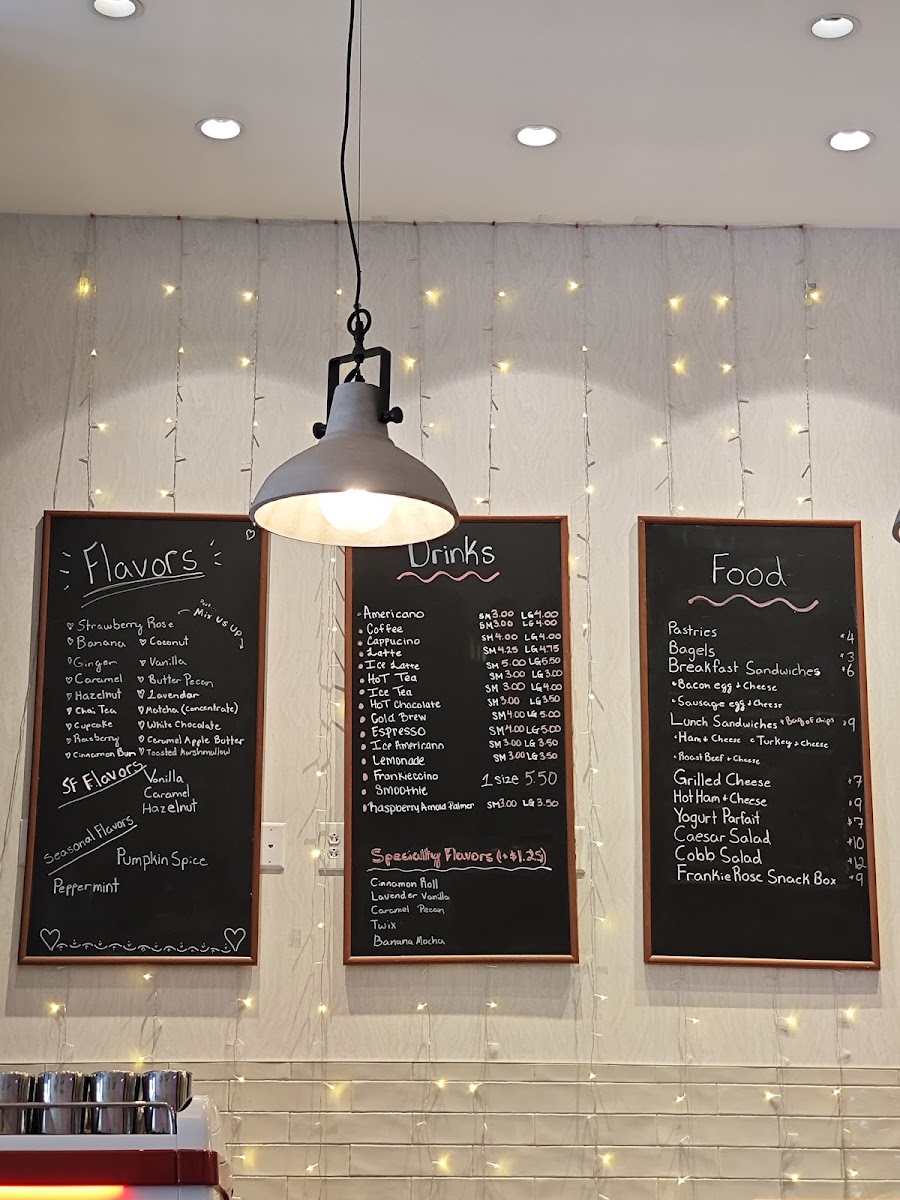 Flavors
Psst...
Mix us up
Strawberry Rose
Banana Coconut
Ginger Vanilla
Caramel Butter Pecan
Hazelnut Lavendar
Chai Tea Matcha (concentrate)
Cupcake White Chocolate
Rasberry Caramel Apple Butter
Cinnamon Bun Toasted Marshmallow
SF Flavors Vanilla
Caramel
Hazelnut
Seasonal Flavors
Pumpkin Spice
Peppermint
Drinks
Americano SM 3.00 LG 4.00
Coffee SM 3.00 LG 4.00
Cappucino SM 4.00 LG 4.00
Latte SM 4.25 LG 4.75
Ice Latte SM 5.00 LG 5.50
Hot Tea SM 3.00 LG 3.00
Ice Tea SM 3.00 LG 4.00
Hot Chocolate SM 3.00 LG 3.50
Cold Brew SM 4.00 LG 5.00
Espresso SM 4.00 LG 5.00
Ice Americano SM 3.00 LG 3.50
Lemonade SM 3.00 LG 3.50
Frankieccino 1 size 5.50
Smoothie
Raspberry Arnold Palmer SM 3.00 LG 3.50
Speciality Flavors (+$1.25)
Cinnamon Roll
Lavender Vanilla
Caramel Pecan
Twix
Banana Mocha
Food
Pastries $4
Bagels $3
Breakfast Sandwiches $6
Bacon egg + Cheese
Sausage egg + Cheese
Lunch Sandwiches + Bag of chips $9
Ham + Cheese Turkey + Cheese
Roast Beef + Cheese
Grilled Cheese $7
Hot Ham + Cheese $9
Yogurt Parfait $7
Caesar Salad $10
Cobb Salad $12
Frankie Rose Snack Box $9